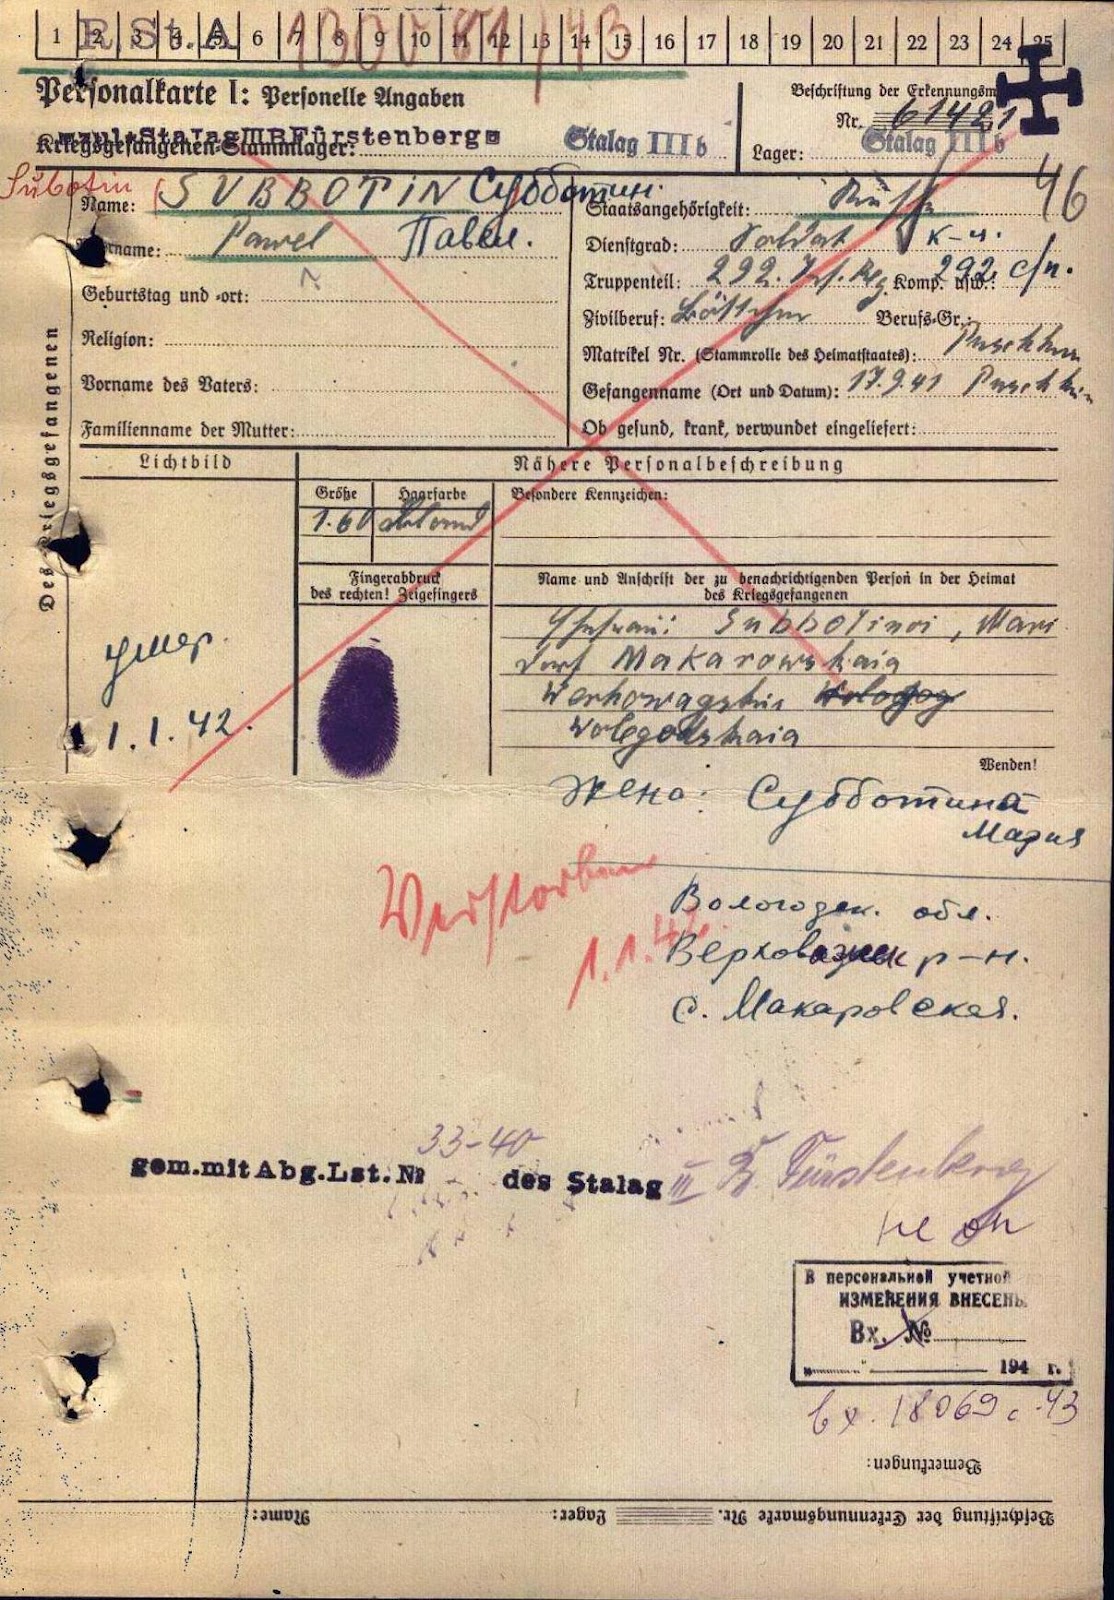 1 2 3 4 5 6 7 8 9 10 11 12 13 14 15 16 17 18 19 20 21 22 23 24 25
R.St.A
Personalkarte I: Personelle Angaben
Beschriftung der Erkennungsm
Nr. 61421
Kriegsgefangenen-Stammlager: Stalag IIIB Fürstenberg Stalag III b
Lager: Stalag III b
46
Subotin
Name: SUBBOTIN Субботин.
Staatsangehörigkeit: Russe
Vorname: Pawel Павел.
Dienstgrad: Soldat к-ц.
Truppenteil: 292. Inf. Reg Komp. usw.: 292 с/п.
Geburtstag und -ort:
Zivilberuf: Böttcher Berufs-Gr.:
Religion:
Matrikel Nr. (Stammrolle des Heimatstaates): Puschkin
Vorname des Vaters:
Gefangenname (Ort und Datum): 17.9.41 Puschkin
Familienname der Mutter:
Ob gesund, krank, verwundet eingeliefert:
Des Kriegsgefangenen
Lichtbild
Nähere Personalbeschreibung
Größe Haarfarbe Besondere Kennzeichen:
1.60 blond
Fingerabdruck
des rechten! Zeigefingers
Name und Anschrift der zu benachrichtigenden Person in der Heimat
des Kriegsgefangenen
Ehefrau: Subbotinoi, Mari
Dorf Makarowskaia
Werhowagskii
Wologodskaia
умер.
1.1.42.
Wenden!
Жена: Субботина
Мария
Verstorben
1.1.42.
Вологодск. обл.
Верховажск р-н.
с. Макаровская.
33-40
gem.mit Abg.Lst.№ des Stalag III B. Fürstenberg
не он
В персональной учетной
ИЗМЕНЕНИЯ ВНЕСЕНЫ
Вх. №
194 г.
вх. 18069с-43
Bemerkungen:
Beschriftung der Erkennungsmarke Nr. Lager: Name: